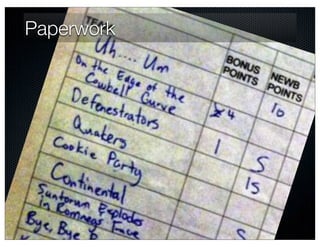 Paperwork
TE
BONUS POINTS
NEWB POINTS
Uh.... Um
10
On the Edge of the
Cowbell Curve
4
Defenestrators
Quakers
1
5
Cookie Party
15
Continental
Santorum Explodes
in Romneys Face
5
Bye, Bye